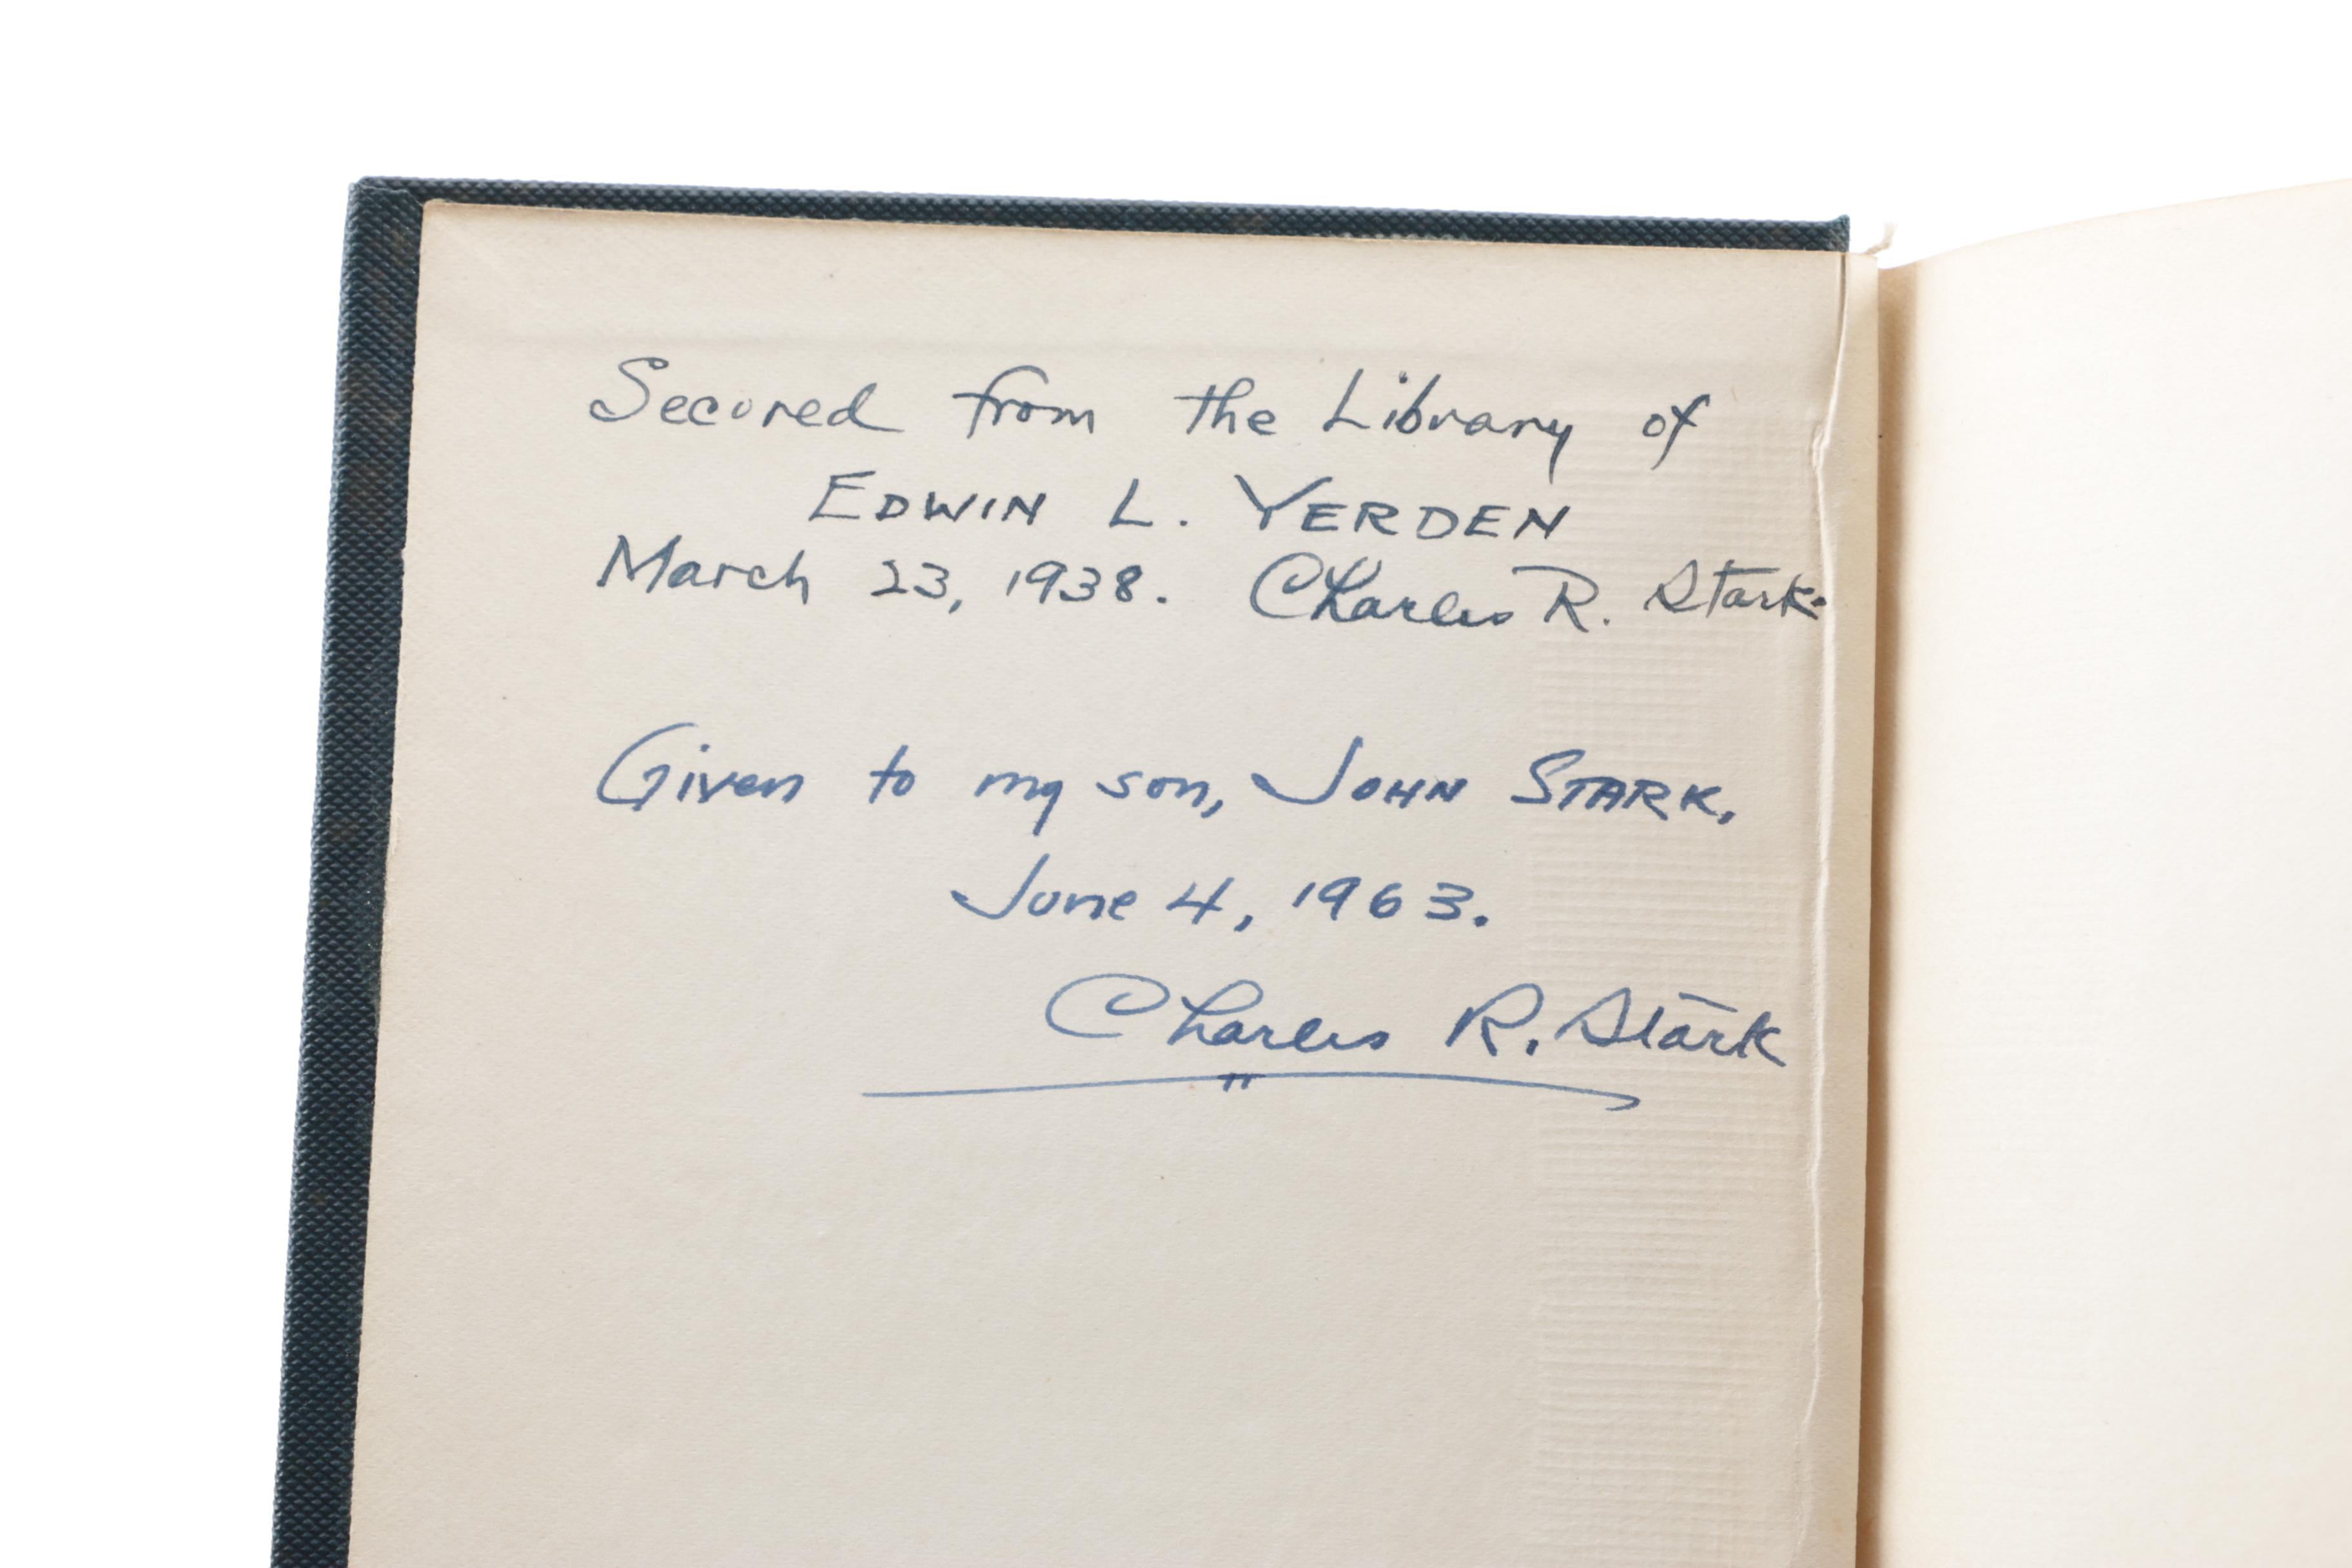 Secured from the Library of
EDWIN L. YERDEN
March 23, 1938. Charles R. Stark.
Given to my son, JOHN STARK,
June 4, 1963.
Charles R. Stark
"